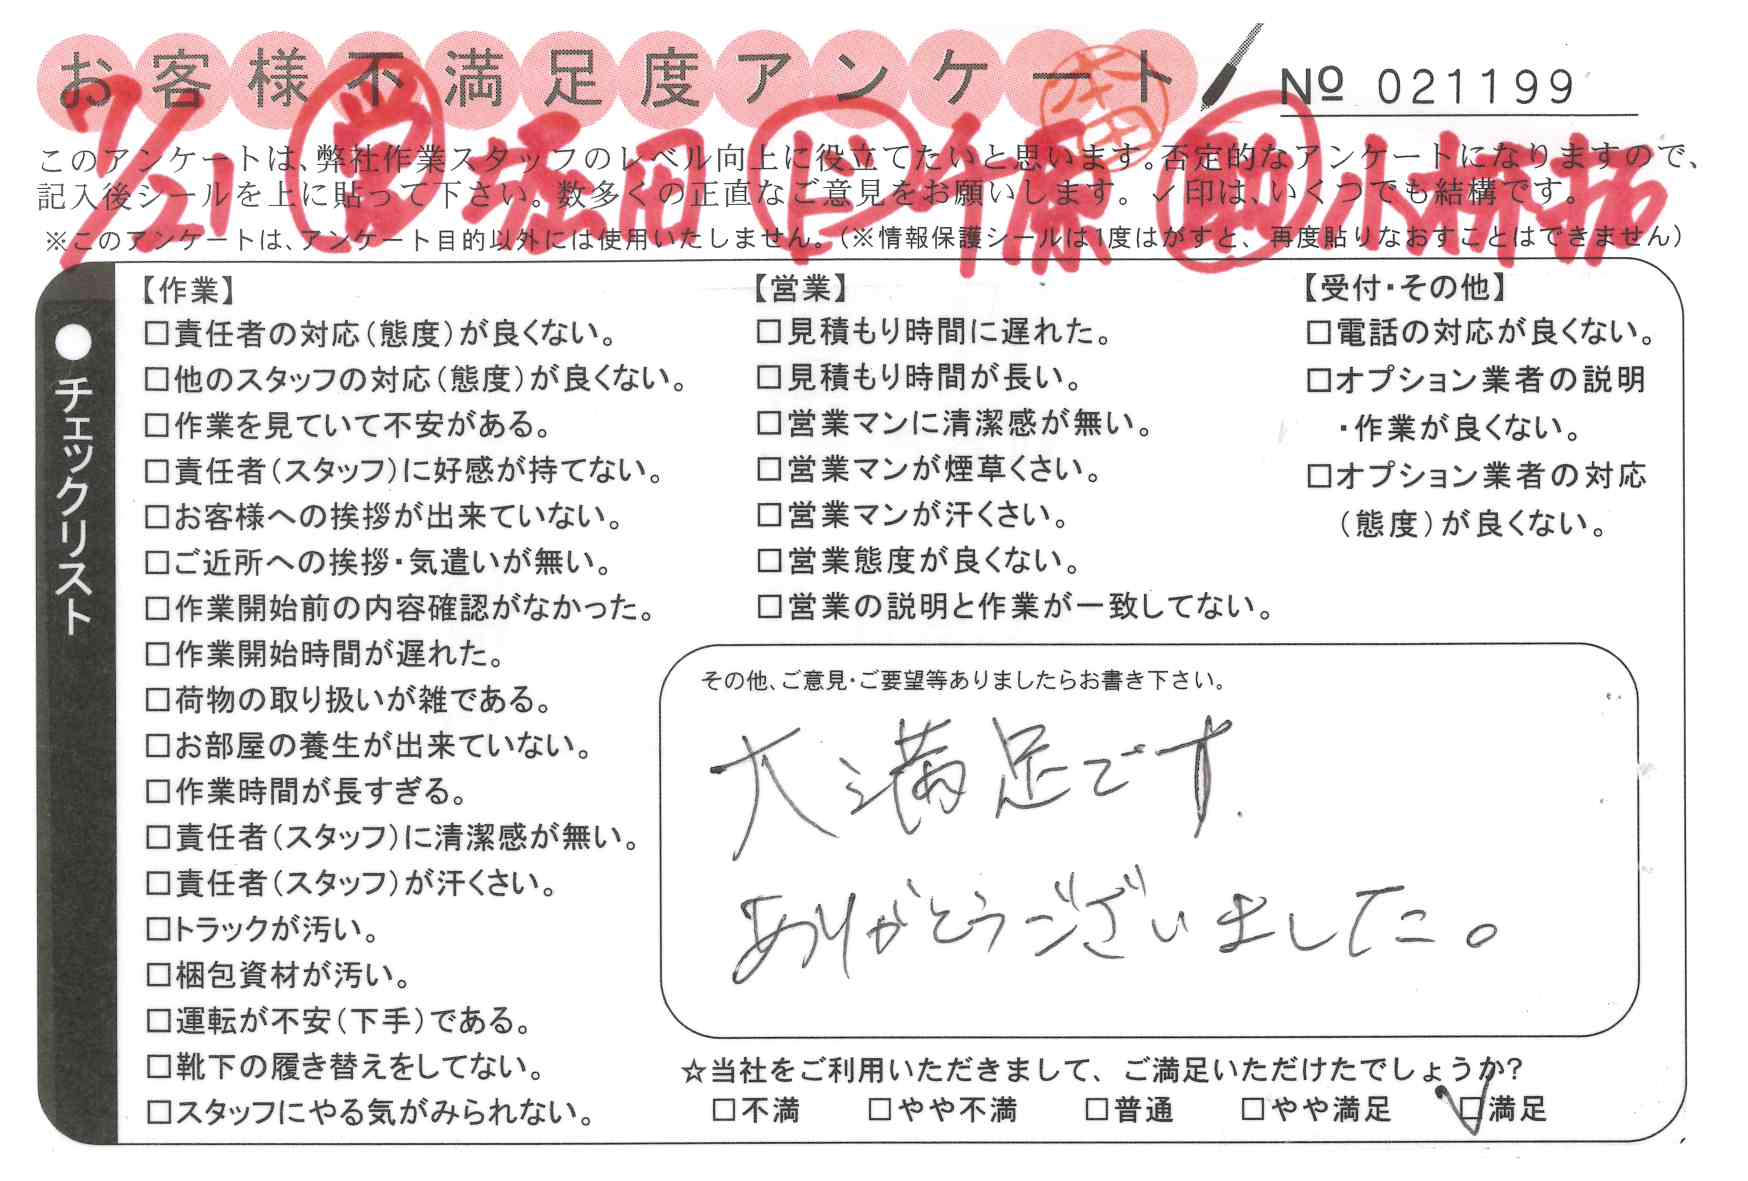 お客様不満足度アンケート
№ 021199
7/21 営 堀田 仁 千原 助 小林拓
このアンケートは、弊社作業スタッフのレベル向上に役立てたいと思います。否定的なアンケートになりますので、
記入後シールを上に貼って下さい。数多くの正直なご意見をお願いします。✓印は、いくつでも結構です。
※このアンケートは、アンケート目的以外には使用いたしません。(※情報保護シールは1度はがすと、再度貼りなおすことはできません)
●チェックリスト
【作業】
□責任者の対応(態度)が良くない。
□他のスタッフの対応(態度)が良くない。
□作業を見ていて不安がある。
□責任者(スタッフ)に好感が持てない。
□お客様への挨拶が出来ていない。
□ご近所への挨拶・気遣いが無い。
□作業開始前の内容確認がなかった。
□作業開始時間が遅れた。
□荷物の取り扱いが雑である。
□お部屋の養生が出来ていない。
□作業時間が長すぎる。
□責任者(スタッフ)に清潔感が無い。
□責任者(スタッフ)が汗くさい。
□トラックが汚い。
□梱包資材が汚い。
□運転が不安(下手)である。
□靴下の履き替えをしてない。
□スタッフにやる気がみられない。
【営業】
□見積もり時間に遅れた。
□見積もり時間が長い。
□営業マンに清潔感が無い。
□営業マンが煙草くさい。
□営業マンが汗くさい。
□営業態度が良くない。
□営業の説明と作業が一致してない。
【受付・その他】
□電話の対応が良くない。
□オプション業者の説明
・作業が良くない。
□オプション業者の対応
(態度)が良くない。
その他、ご意見・ご要望等ありましたらお書き下さい。
大満足です.
ありがとうございました。
☆当社をご利用いただきまして、ご満足いただけたでしょうか?
□不満 □やや不満 □普通 □やや満足 ☑満足